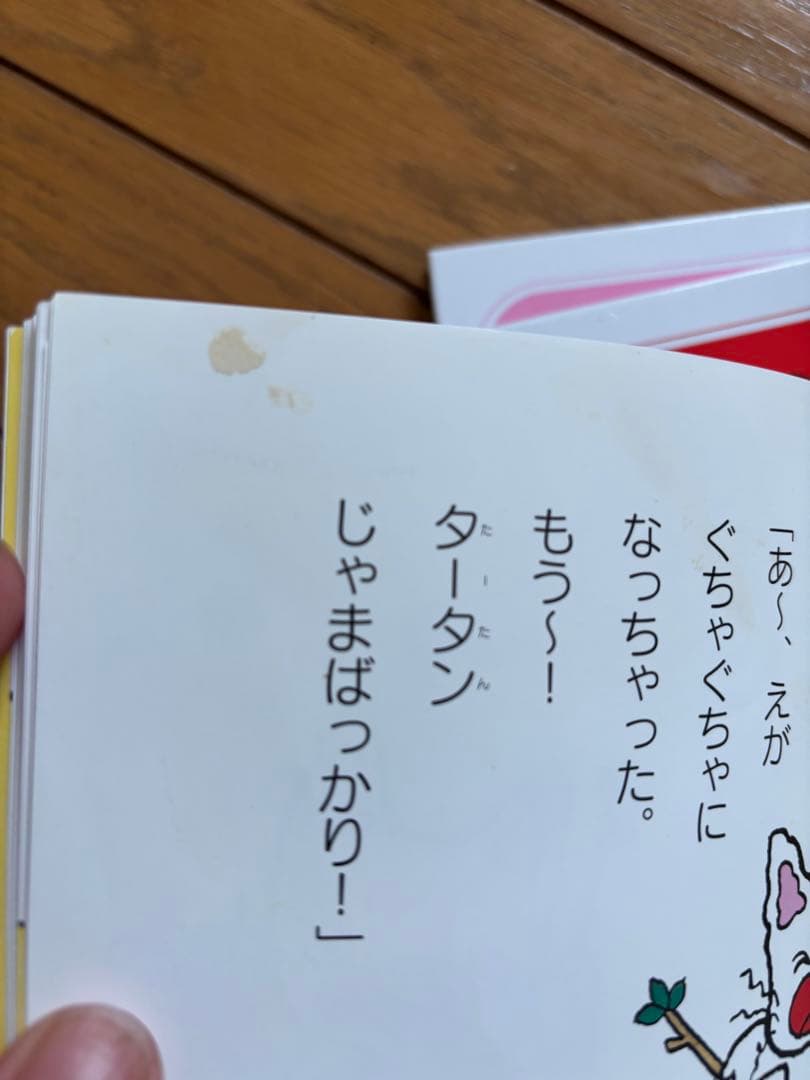 「あ〜、えが
ぐちゃぐちゃに
なっちゃった。
もう〜!
タータン
たーたん
じゃまばっかり!」